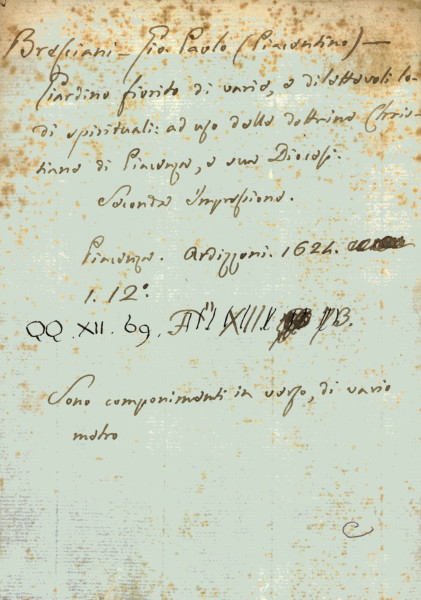 Bresciani - Gio Paolo (Piacentino) -
Giardino fiorito di varie, e dilettevoli lo-
di spirituali: ad uso della dottrina Chris-
tiana di Piacenza, e sua Diocesi.
Seconda Impressione.
Piacenza. Ardizzoni. 1624.
1. 12°.
QQ. XII. 69.
Sono componimenti in verso, di vario
metro